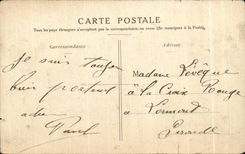 CARTE POSTALE
Tous les pays étrangers n'acceptent pas la correspondance au recto (Se renseigner à la Poste).
Correspondance
Adresse
Je suis toujours
bien portant
adieu
Paul
Madame Levêque
à la Croix Rouge
à Lormont
Gironde